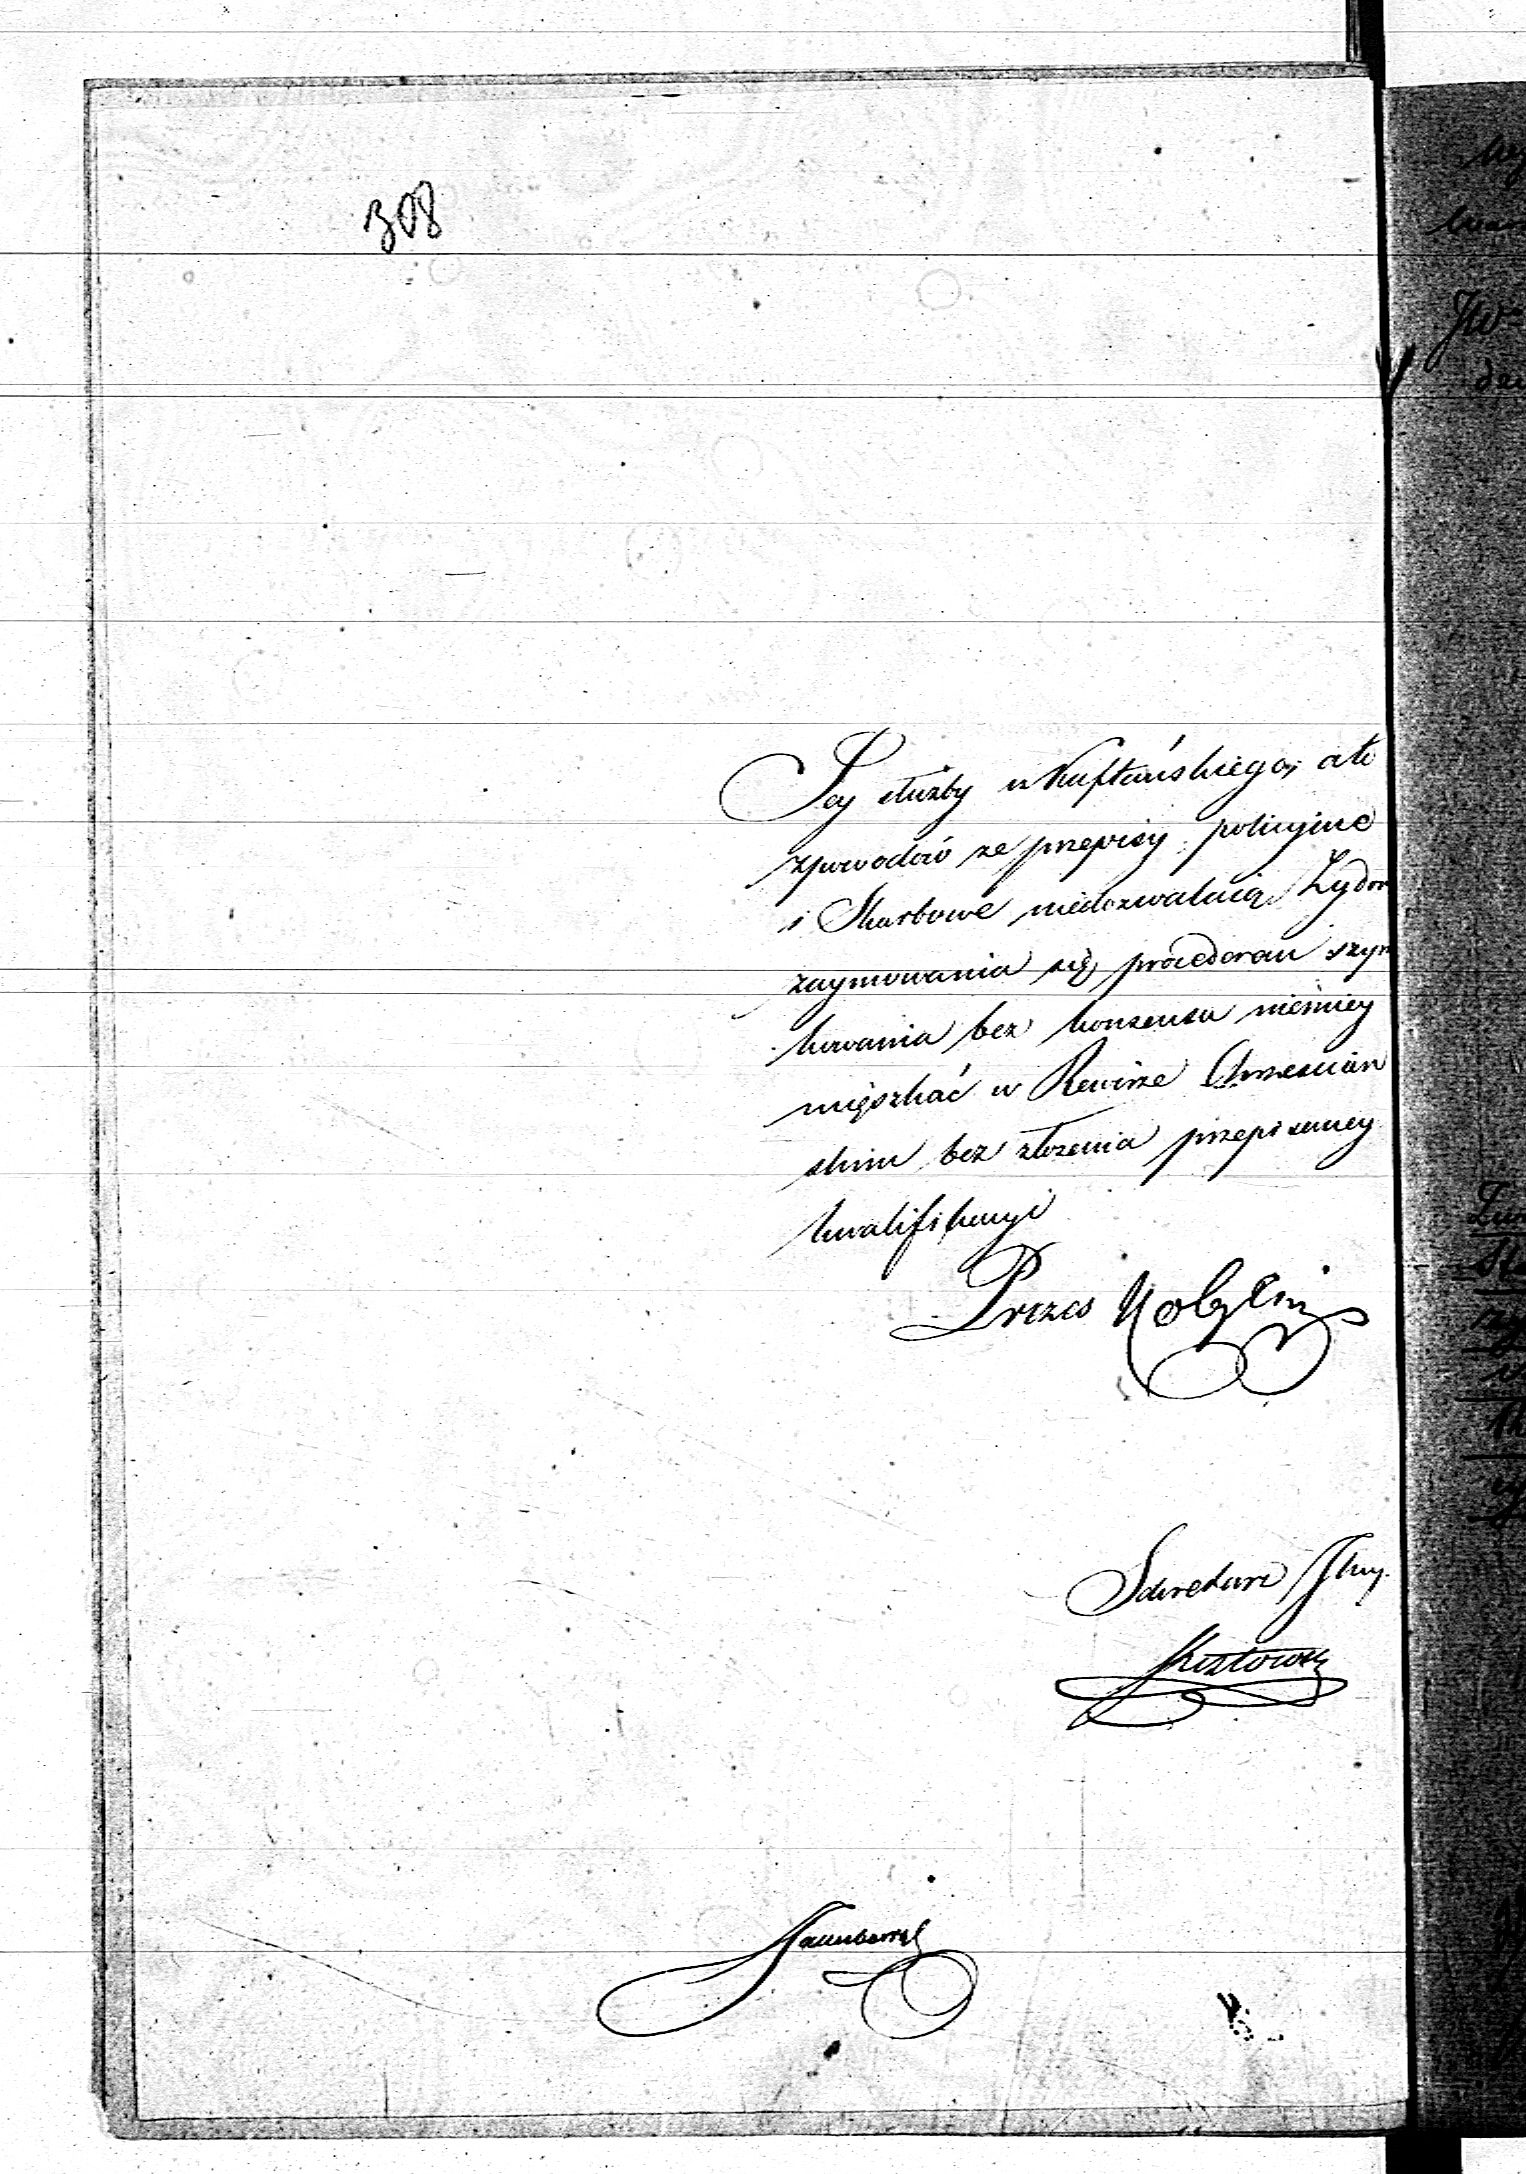 308
Jey służby u Kuftańskiego, ato
zpowodów że przepisy policyine
i Skarbowe niedozwalaią Żydom
zaymowania się procederem szyn
kowania bez konsensu niemniey
mięszkać w Rewirze Chrześciań
skim bez złożenia przepisaney
kwalifikacyi
Prezes
Sekretarz Jlny.